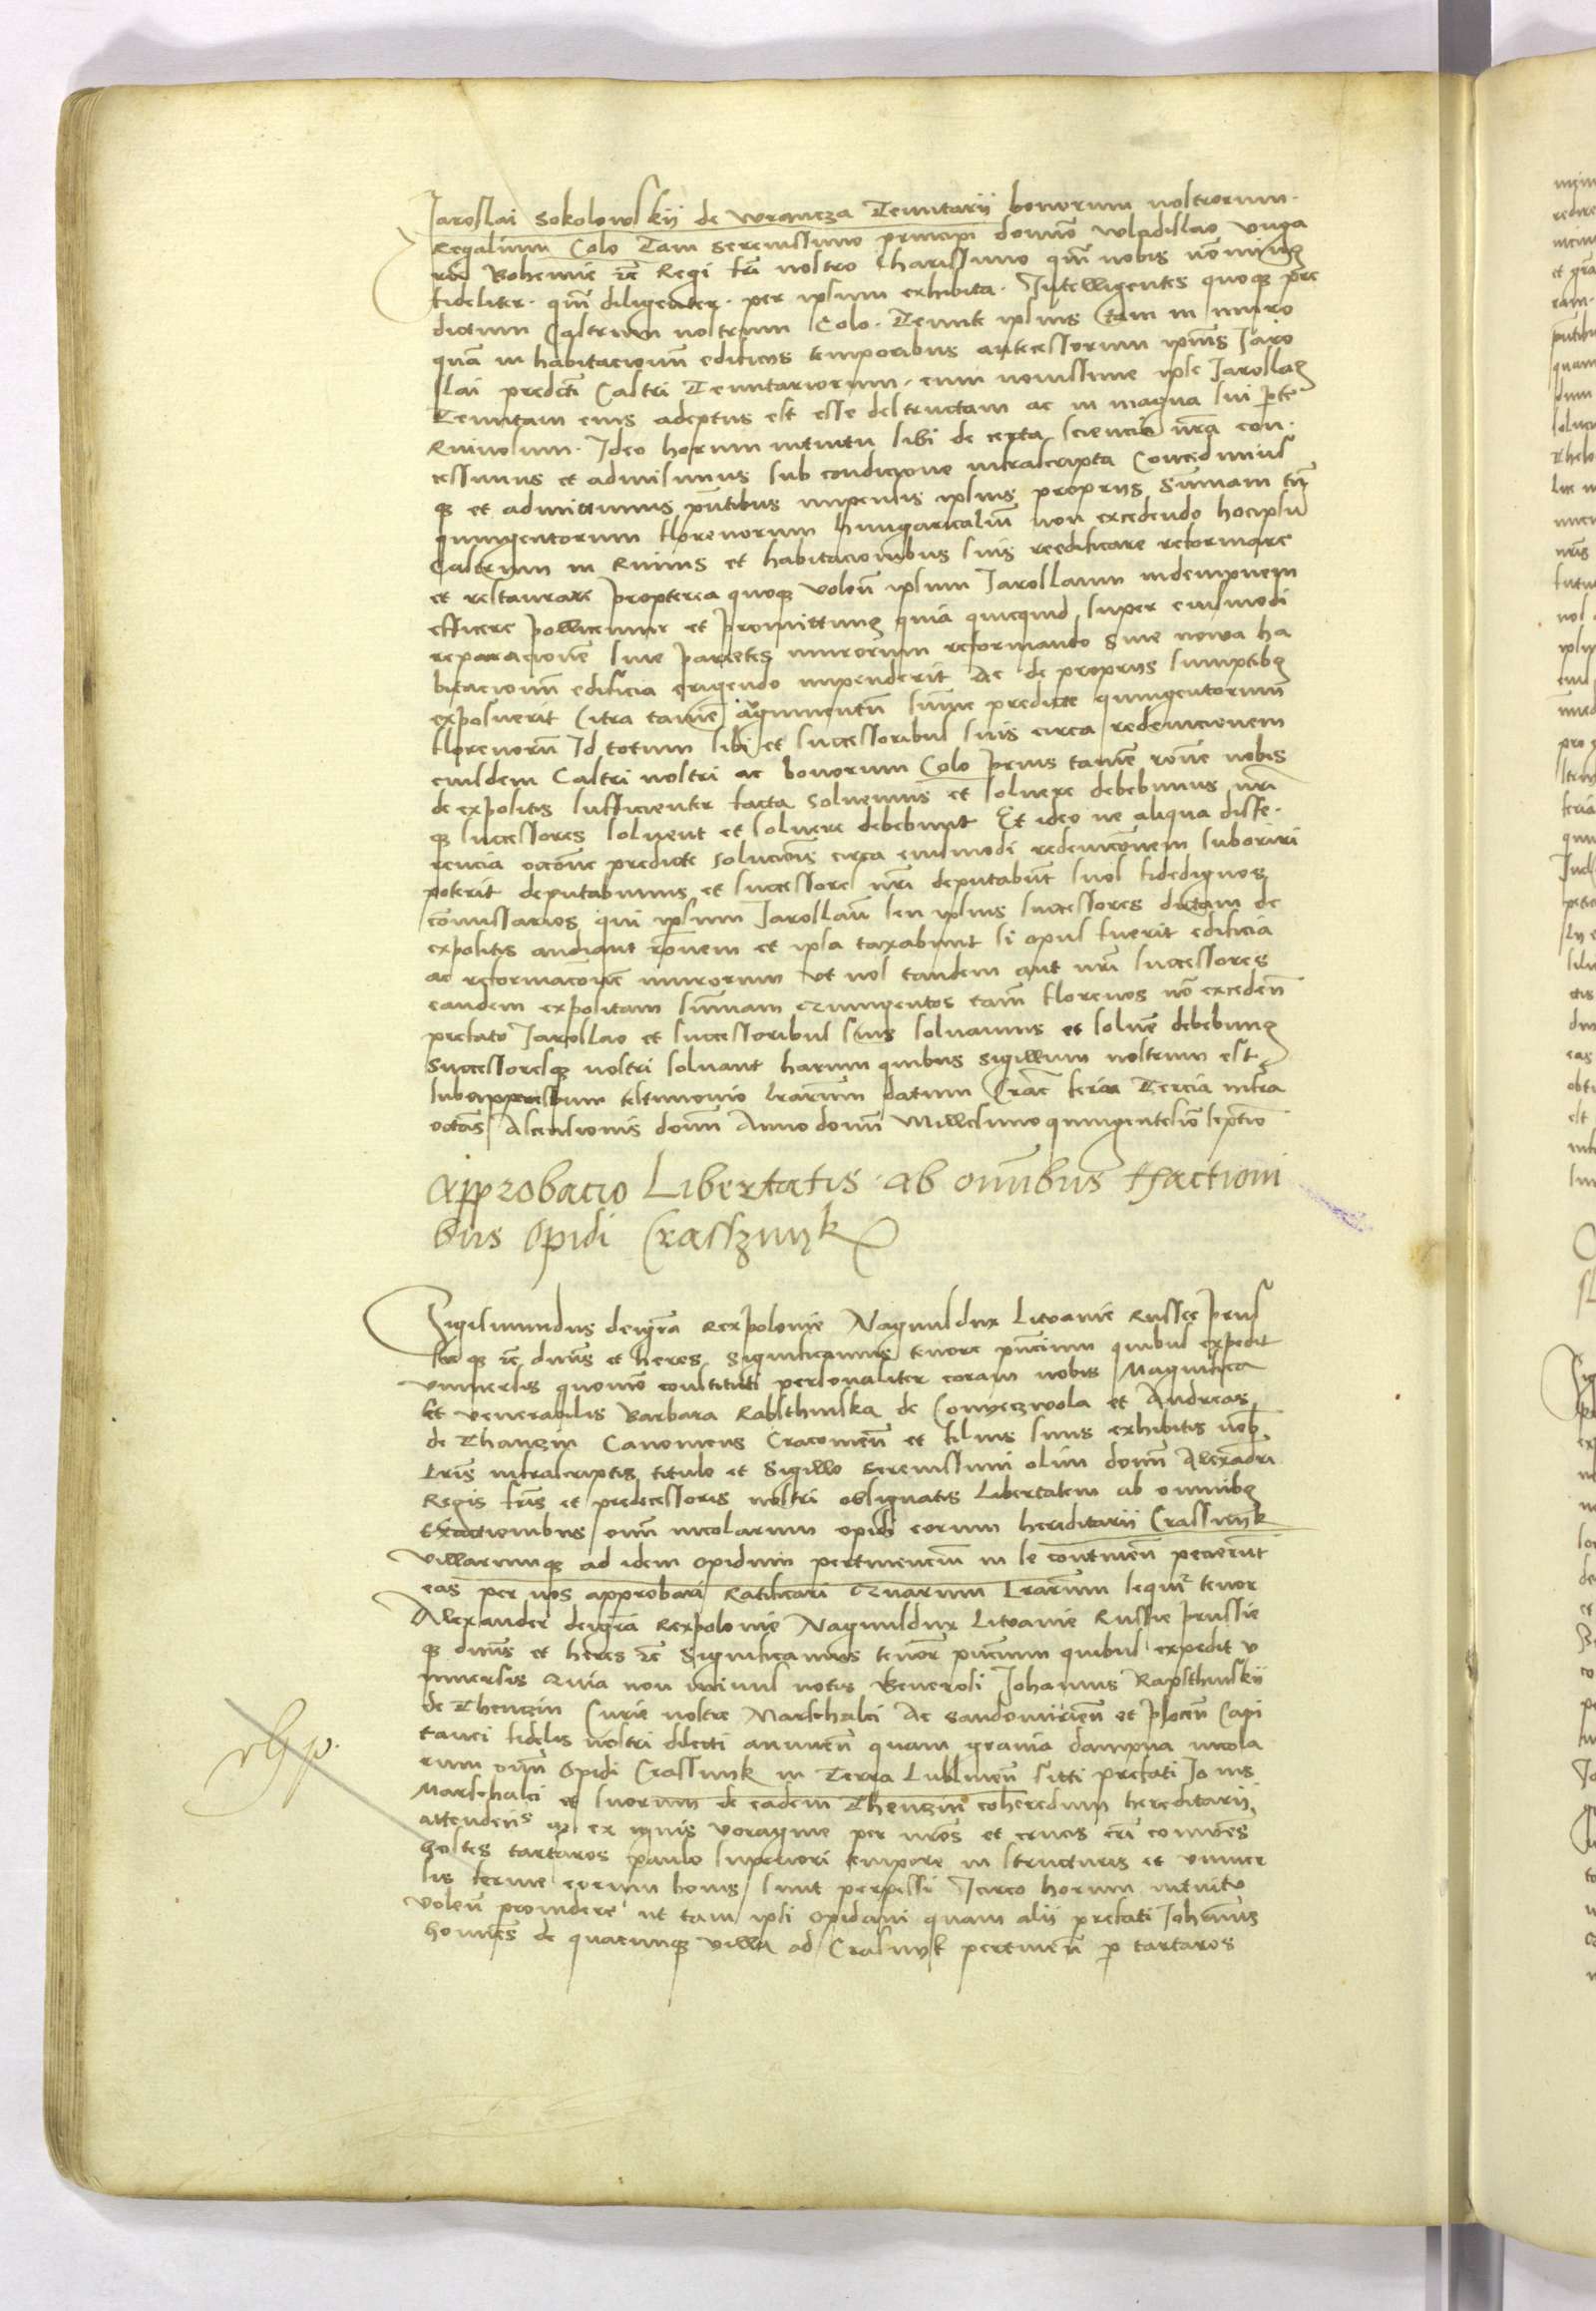 Jaroslai Sokolowskij de wrancza Tenutarij bonorum nostrorum
Regalium Colo Tam serenissimo principi domno wladislao unga
rie Bohemie etc̃ Regi frĩ nostro Charissimo qm̃ nobis nõ minus
fideliter qm̃ diligenter per ipsum exhibita Intelligentes quoqꝫ pre
dictum Castrum nostrum Colo Tenute ipsius tam in muro
quã in habitacionum edificiis temporibus antecessorum ipsius Jaro
slai predicti Castri Tenutariorum cum novissime ipse Jaroslaus
Tenutam eius adeptus est esse destructam ac in magna sui pte
Ruinosum Ideo horum intuitu sibi de certa sciencia nr̃a con
cessimus et admisimus sub condicione infrascripta Concedimus
qꝫ et admittimus pñtibus impensis ipsius propriis Sumam tñ
quingentorum florenorum hungaricaliũ non excedendo hocipsũ
Castrum in Ruinis et habitacionibus suis reedificare reformare
et restaurare propterea quoqꝫ voleñ ipsum Jaroslaum indempnem
efficere pollicemur et promittimus quia quicquid super eiusmodi
reparacionem sive parietes murorum reformando Sive nova ha
bitacionũ edificia erigendo impenderit Ac de propriis sumptibus
exposuerit Citra tamẽ augmentũ summe predicte quingentorum
florenorũ Id totum sibi et successoribus suis circa redempcionem
eiusdem Castri nostri ac bonorum Colo prius tamẽ rõne nobis
de expositis sufficienter facta Solvemus et solvere debebimus nr̃i
qꝫ successores solvent et solvere debebunt Et ideo ne aliqua diffe
rencia occõne predicte solucionis circa eiusmodi redempcõnem suboriri
poterit deputabimus et successores nr̃i deputabũt suos fidedignos
comissarios qui ipsum Jaroslaũ seu ipsius successores dictam de
expositis audiant rõnem et ipsa taxabunt si opus fuerit edificia
ac reformacõnẽ murorum ut nos tandem aut nr̃i successores
eandem expositam sum̃am Quingentos tam̃ florenos nõ excedeñ
prefato Jaroslao et successoribus suis solvamus et solvẽ debebimus
Successoresqꝫ nostri solvant harum quibus Sigillum nostrum est
subappensum testimonio lr̃arum datum Crac̃ feria Tercia infra
octãs Ascensionis domĩ Anno domĩ Millesimo quingentesio septio
Approbacio Libertatis ab omnibus Exactioni
bus Opidi Crassznyk
Sigismundus deigr̃a Rexpolonie Magnusdux Litvanie Russie prus
sie qꝫ etc̃ dñus et heres Significamus tenore pñcium quibus expedit
universis quomõ constituti personaliter coram nobis Magnifica
Et Venerabilis Barbara Rabsthinska de Conyeczwola et Andreas
de Thanczin Canonicus Cracovieñ et filius suus exhibitis nob
Lr̃is infrascriptis titulo et Sigillo Serenissimi olim domĩ Alexãdri
Regis fr̃is et predecessoris nostri obsignatis Libertatem ab omnibus
Exactionibus om̃ incolarum opidi eorum hereditarii Crassnik
Villarumqꝫ ad idem opidum pertinenciũ in se continẽn pecierũt
eas per nos approbari Ratificari Quarum Lr̃arum sequitur tenor
Alexander deigr̃a Rexpolonie Magnusdux Litvanie Russie prussie
qꝫ dñus et heres etc̃ Significamus tenore pñcium quibus expedit u
niversis Quia non minus notis Generosi Johannis Rapsthinskij
de Thenczin Curie nostre Marschalci Ac Sandomirieñ et ploceñ Capi
tanei fidelis nostri dilecti anuueñ quam gravia dampna incola
rum om̃ Opidi Crassnik in Terra Lublineñ sitti prefati Jo nis
Marschalci et suorum de eadem Thenczin coheredum hereditarij
attendens qꝫ ex ignis voragine per nr̃os et crucis cr̃i comẽs
hostes tartaros paulo superiori tempore in structuris et univer
sis ferme eorum bonis sunt perpessi Icirco horum intuitu
voleñ providere ut tam ipsi opidani quam alij prefati Johannis
homines de quacunqꝫ villa ad Crasnyk pertineñ p tartaros